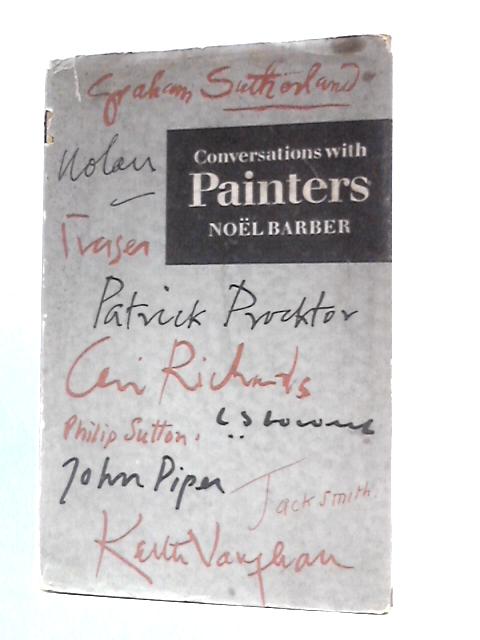 Graham Sutherland
Conversations with
Painters
NOËL BARBER
Nolan
Fraser
Patrick Procktor
Ceri Richards
Philip Sutton.
LS Lowry
John Piper
Jack Smith.
Keith Vaughan